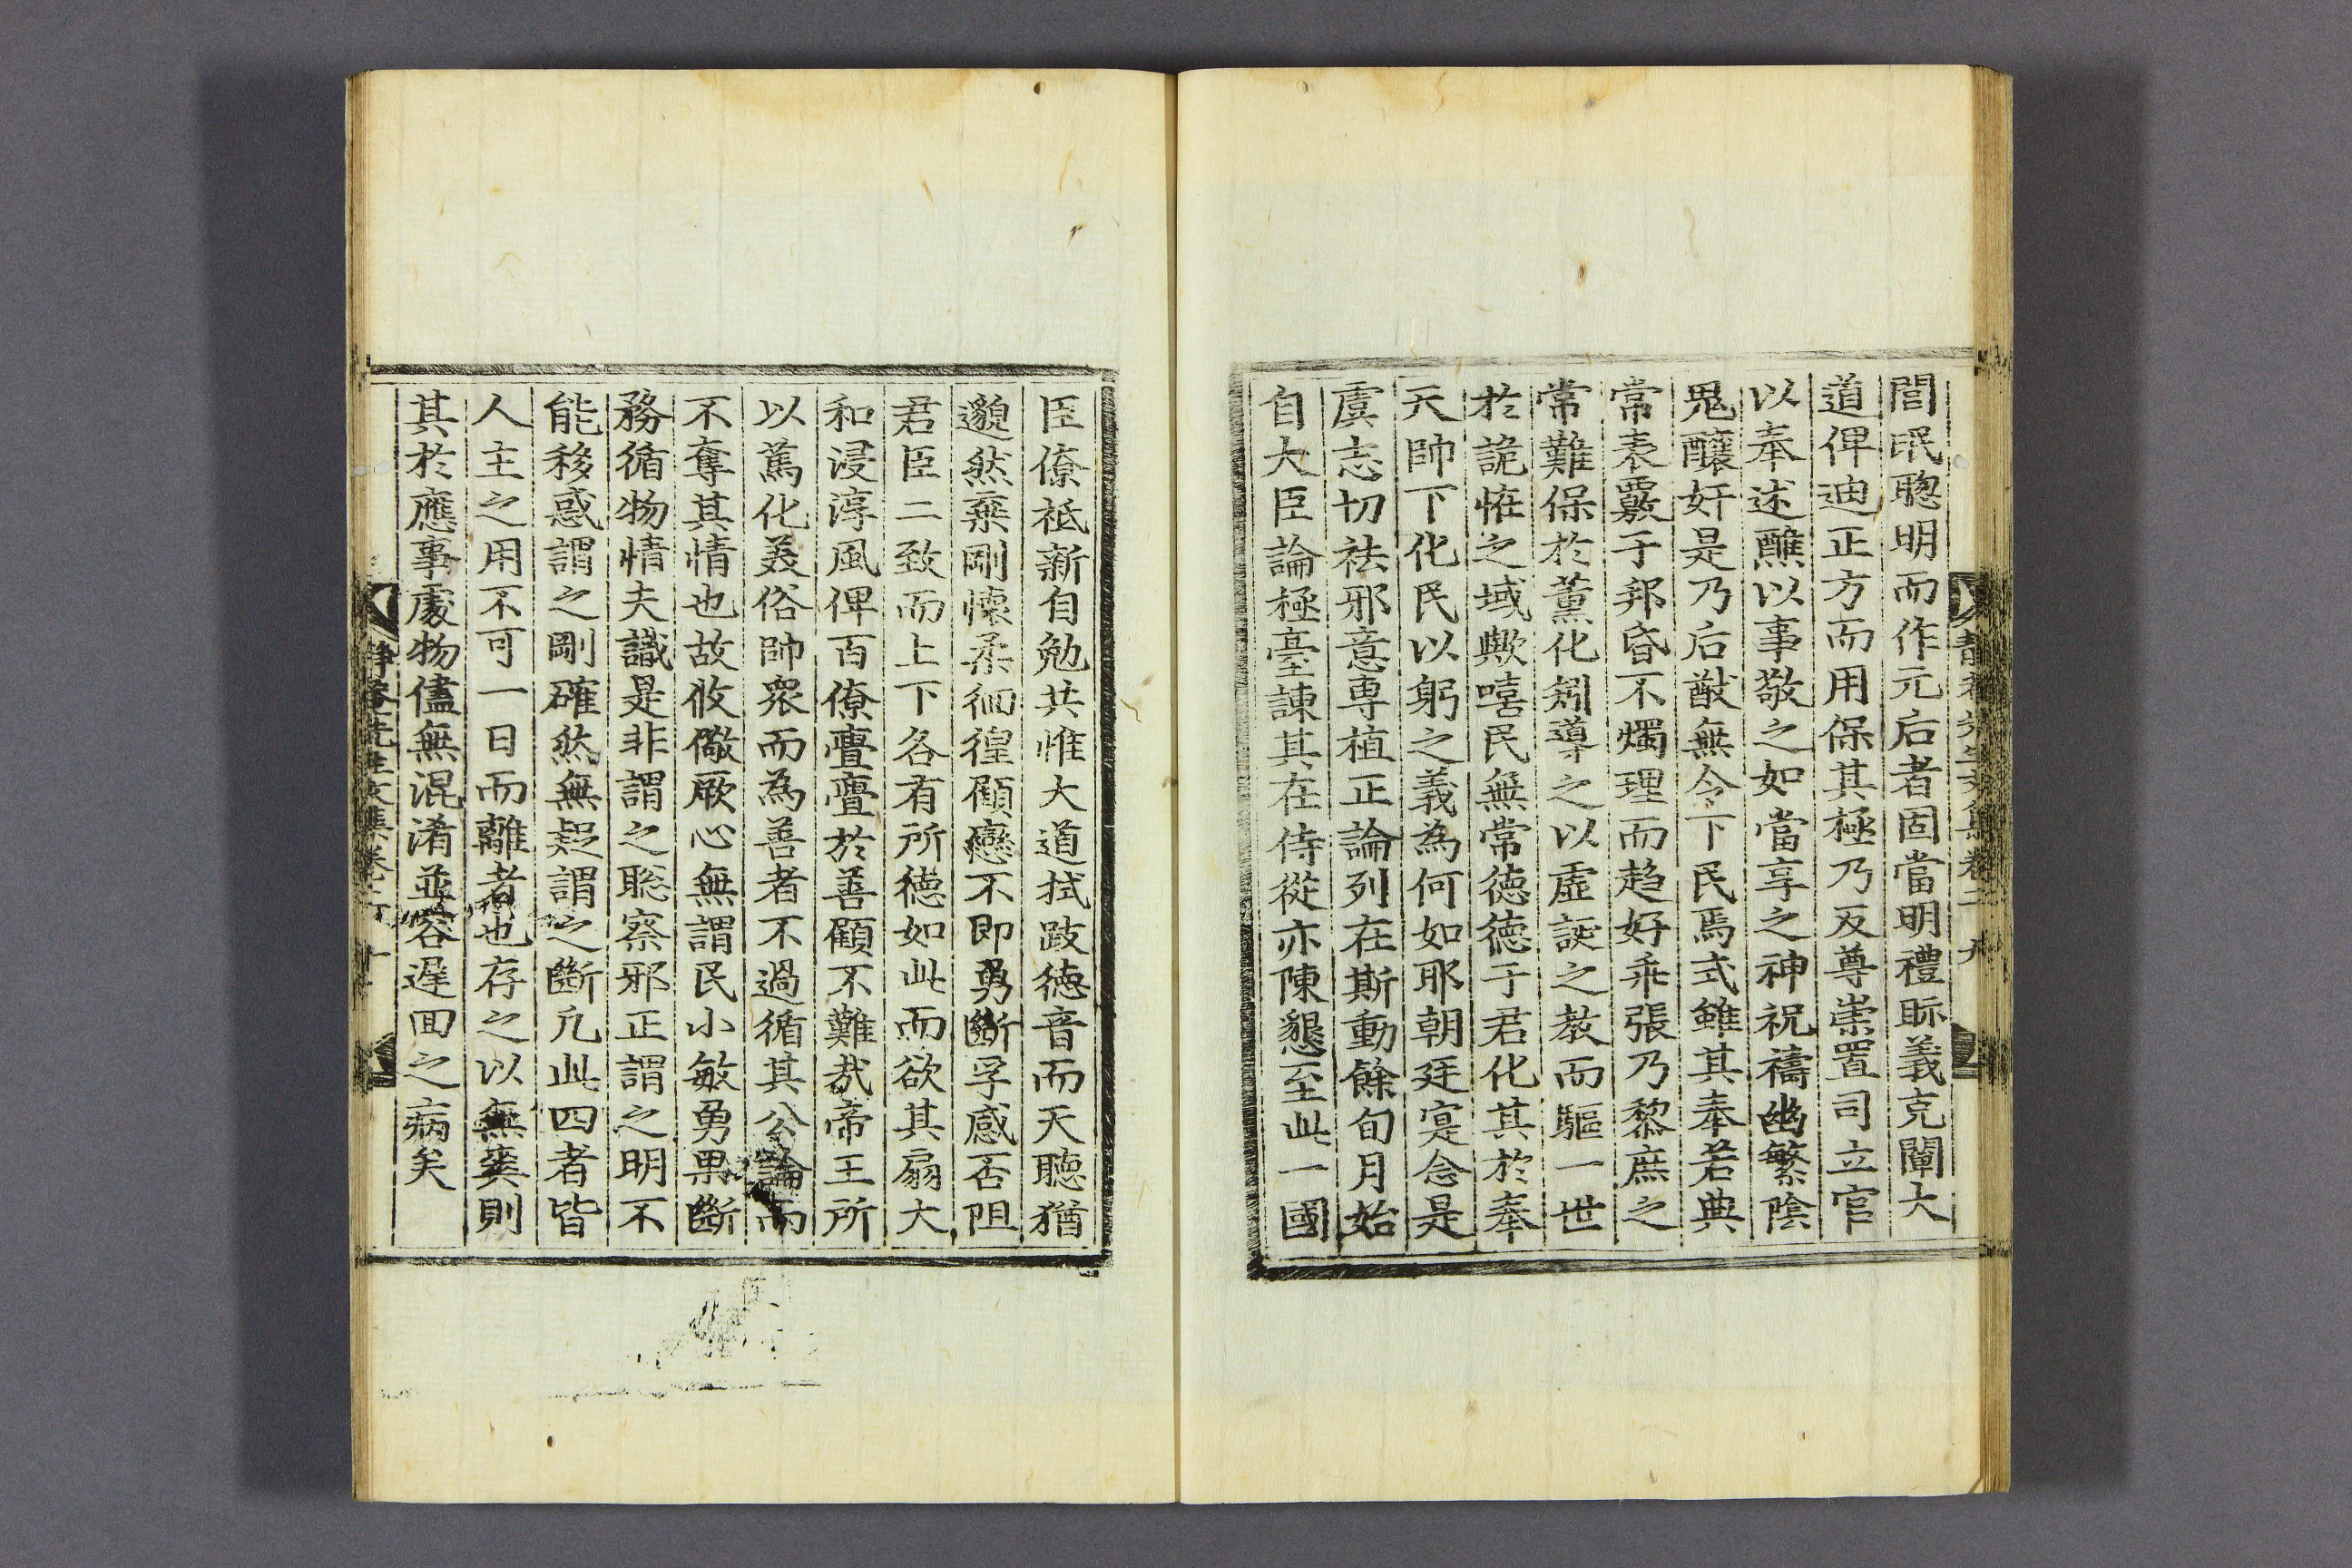 誾民聰明而作元后者固當明禮眎義克闡大
道俾迪正方而用保其極乃反尊崇置司立官
以奉述醮以事敬之如當享之神祝禱幽繁陰
鬼釀奸是乃后猷無令下民焉式雖其奉若典
常表覈于邦昏不燭理而趍好乖張乃黎庶之
常難保於薰化矧導之以虛誕之敎而驅一世
於詭恠之域歟嘻民無常德德于君化其於奉
天帥下化民以躬之義為何如耶朝廷寔念是
虞志切祛邪意専植正論列在斯動餘旬月始
自大臣論極臺諫其在侍從亦陳懇至此一國
臣僚祗新自勉共惟大道拭跂德音而天聽猶
邈然棄剛懷柔徊徨顧戀不即勇斷孚感否阻
君臣二致而上下各有所德如此而欲其扇大
和浸淳風俾百僚亹亹於善顧不難哉帝王所
以篤化美俗帥衆而為善者不過循其公論而
不奪其情也故攸儆厥心無謂民小敏勇果斷
務循物情夫識是非謂之聡察邪正謂之明不
能移惑謂之剛確然無疑謂之斷凢此四者皆
人主之用不可一日而離者也存之以無爽則
其於應事處物儘無混淆並容遅回之病矣
先生文集卷二 九
靜菴先生文集卷二 十